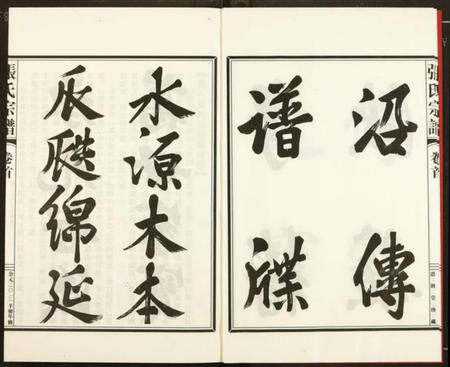 張氏宗譜 卷首
沿傳
譜牒
水源木本
瓜瓞綿延
張氏宗譜 卷首